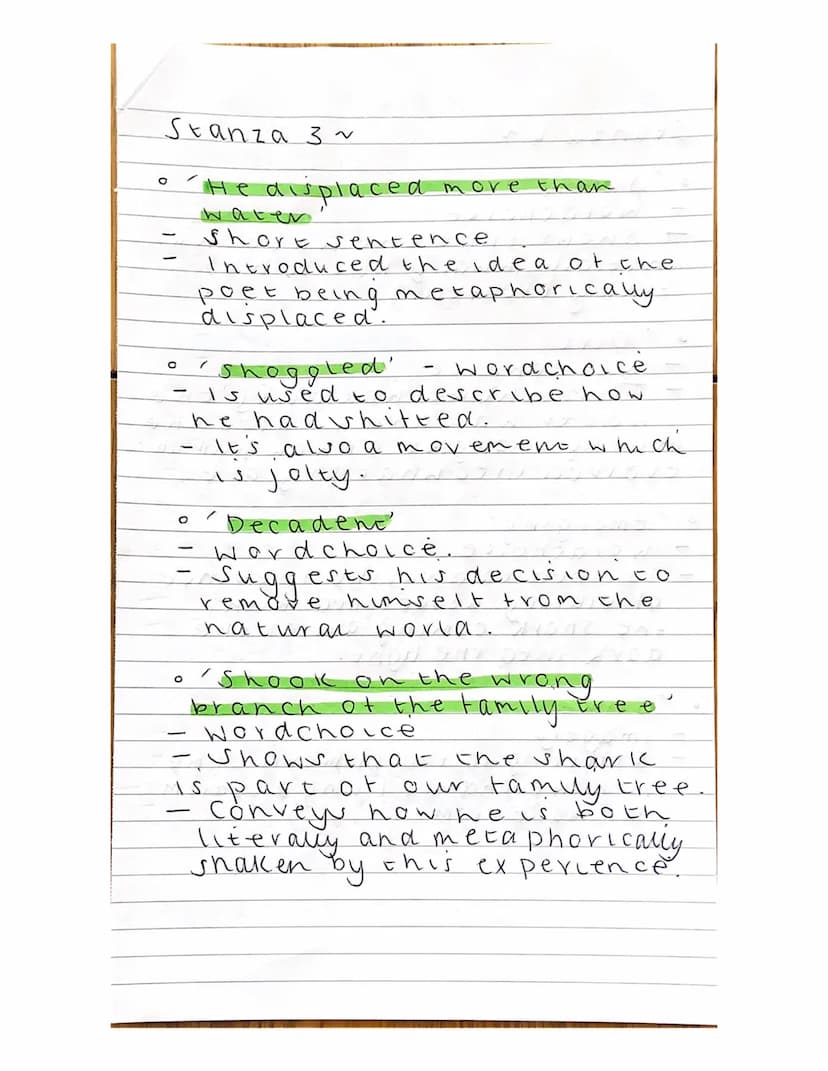 Stanza 3 ~
° 'He displaced more than
water'
- Short sentence
- Introduced the idea of the
poet being metaphorically
displaced.
° 'Shoggled' - wordchoice
- Is used to describe how
he had shifted.
- It's also a movement which
is jolty.
° 'Decadent'
- wordchoice.
- Suggests his decision to
remove himself from the
natural world.
° 'Shook on the wrong
branch of the family tree'
- wordchoice
- Shows that the shark
is part of our family tree.
- Conveys how he is both
literally and metaphorically
shaken by this experience.